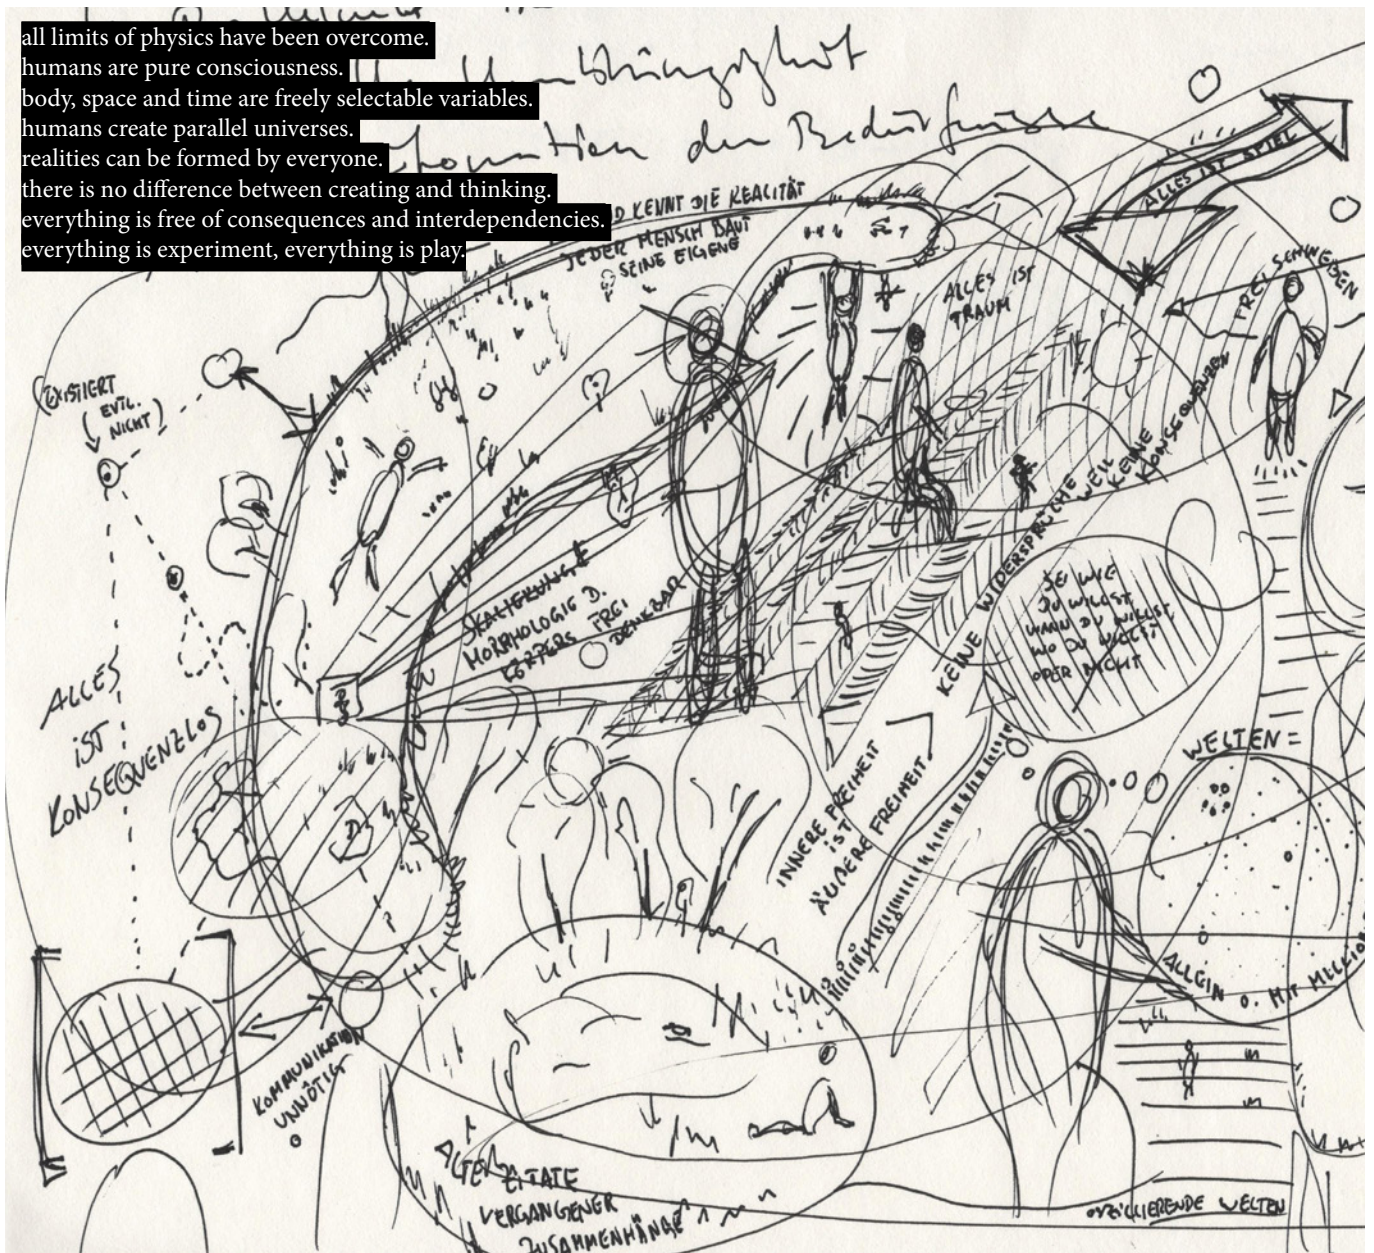 all limits of physics have been overcome.
humans are pure consciousness.
body, space and time are freely selectable variables.
humans create parallel universes.
realities can be formed by everyone.
there is no difference between creating and thinking.
everything is free of consequences and interdependencies.
everything is experiment, everything is play.
der Bedürfnisse
KENNT DIE REALITÄT
JEDER MENSCH BAUT
SEINE EIGENE
ALLES IST SPIEL
FREI SCHWEBEN
ALLES IST
TRAUM
EXISTIERT
(EVTL.
NICHT)
KEINE WIDERSPRÜCHE WEIL
KEINE
KONSEQUENZEN
SKALIERUNG &
MORPHOLOGIE D.
KÖRPERS FREI
DENKBAR
SEI WIE
DU WILLST
WANN DU WILLST
WO DU WILLST
ODER NICHT
ALLES
IST
KONSEQUENZLOS
WELTEN =
INNERE FREIHEIT
IST
ÄUSSERE FREIHEIT
ALLEIN O. MIT MILLION
KOMMUNIKATION
UNNÖTIG
ZITATE
VERGANGENER
ZUSAMMENHÄNGE
OSZILLIERENDE WELTEN